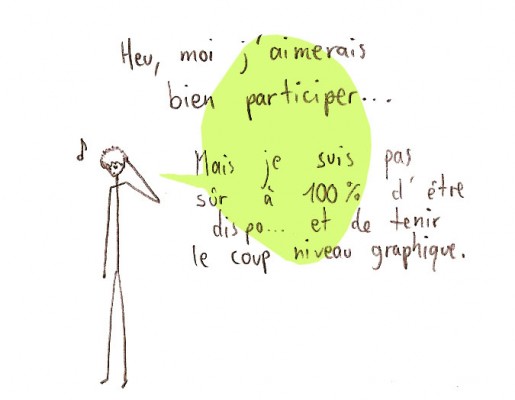 Heu, moi j'aimerais
bien participer...
Mais je suis pas
sûr à 100% d'être
dispo... et de tenir
le coup niveau graphique.